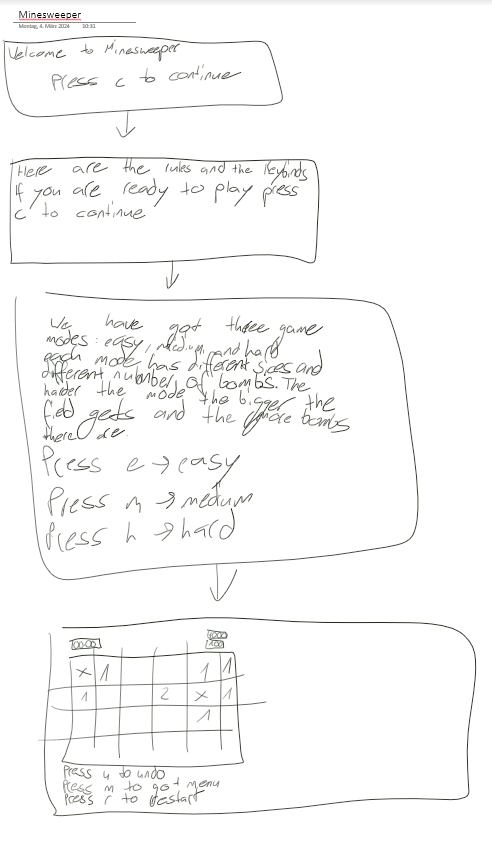 Minesweeper
Montag, 4. März 2024 10:31
Welcome to Minesweeper
Press c to continue
Here are the rules and the Keybinds
If you are ready to play press
C to continue
We have got three game
modes: easy, medium, and hard
each mode has different sices and
different number of bombs. The
harder the mode the bigger the
field gets and the more bombs
there are.
Press e → easy
Press m → medium
Press h → hard
00:00
X 1 1 1
1 2 X 1
1
Press u to undo
Press m to got menu
Press r to restart